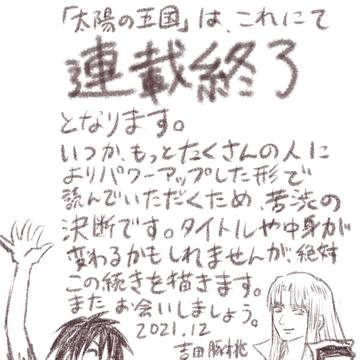 「太陽の王国」は、これにて
連載終了
となります。
いつか、もっとたくさんの人に
よりパワーアップした形で
読んでいただくため、苦渋の
決断です。タイトルや中身が
変わるかもしれませんが、絶対
この続きを描きます。
またお会いしましょう。
2021.12
吉田